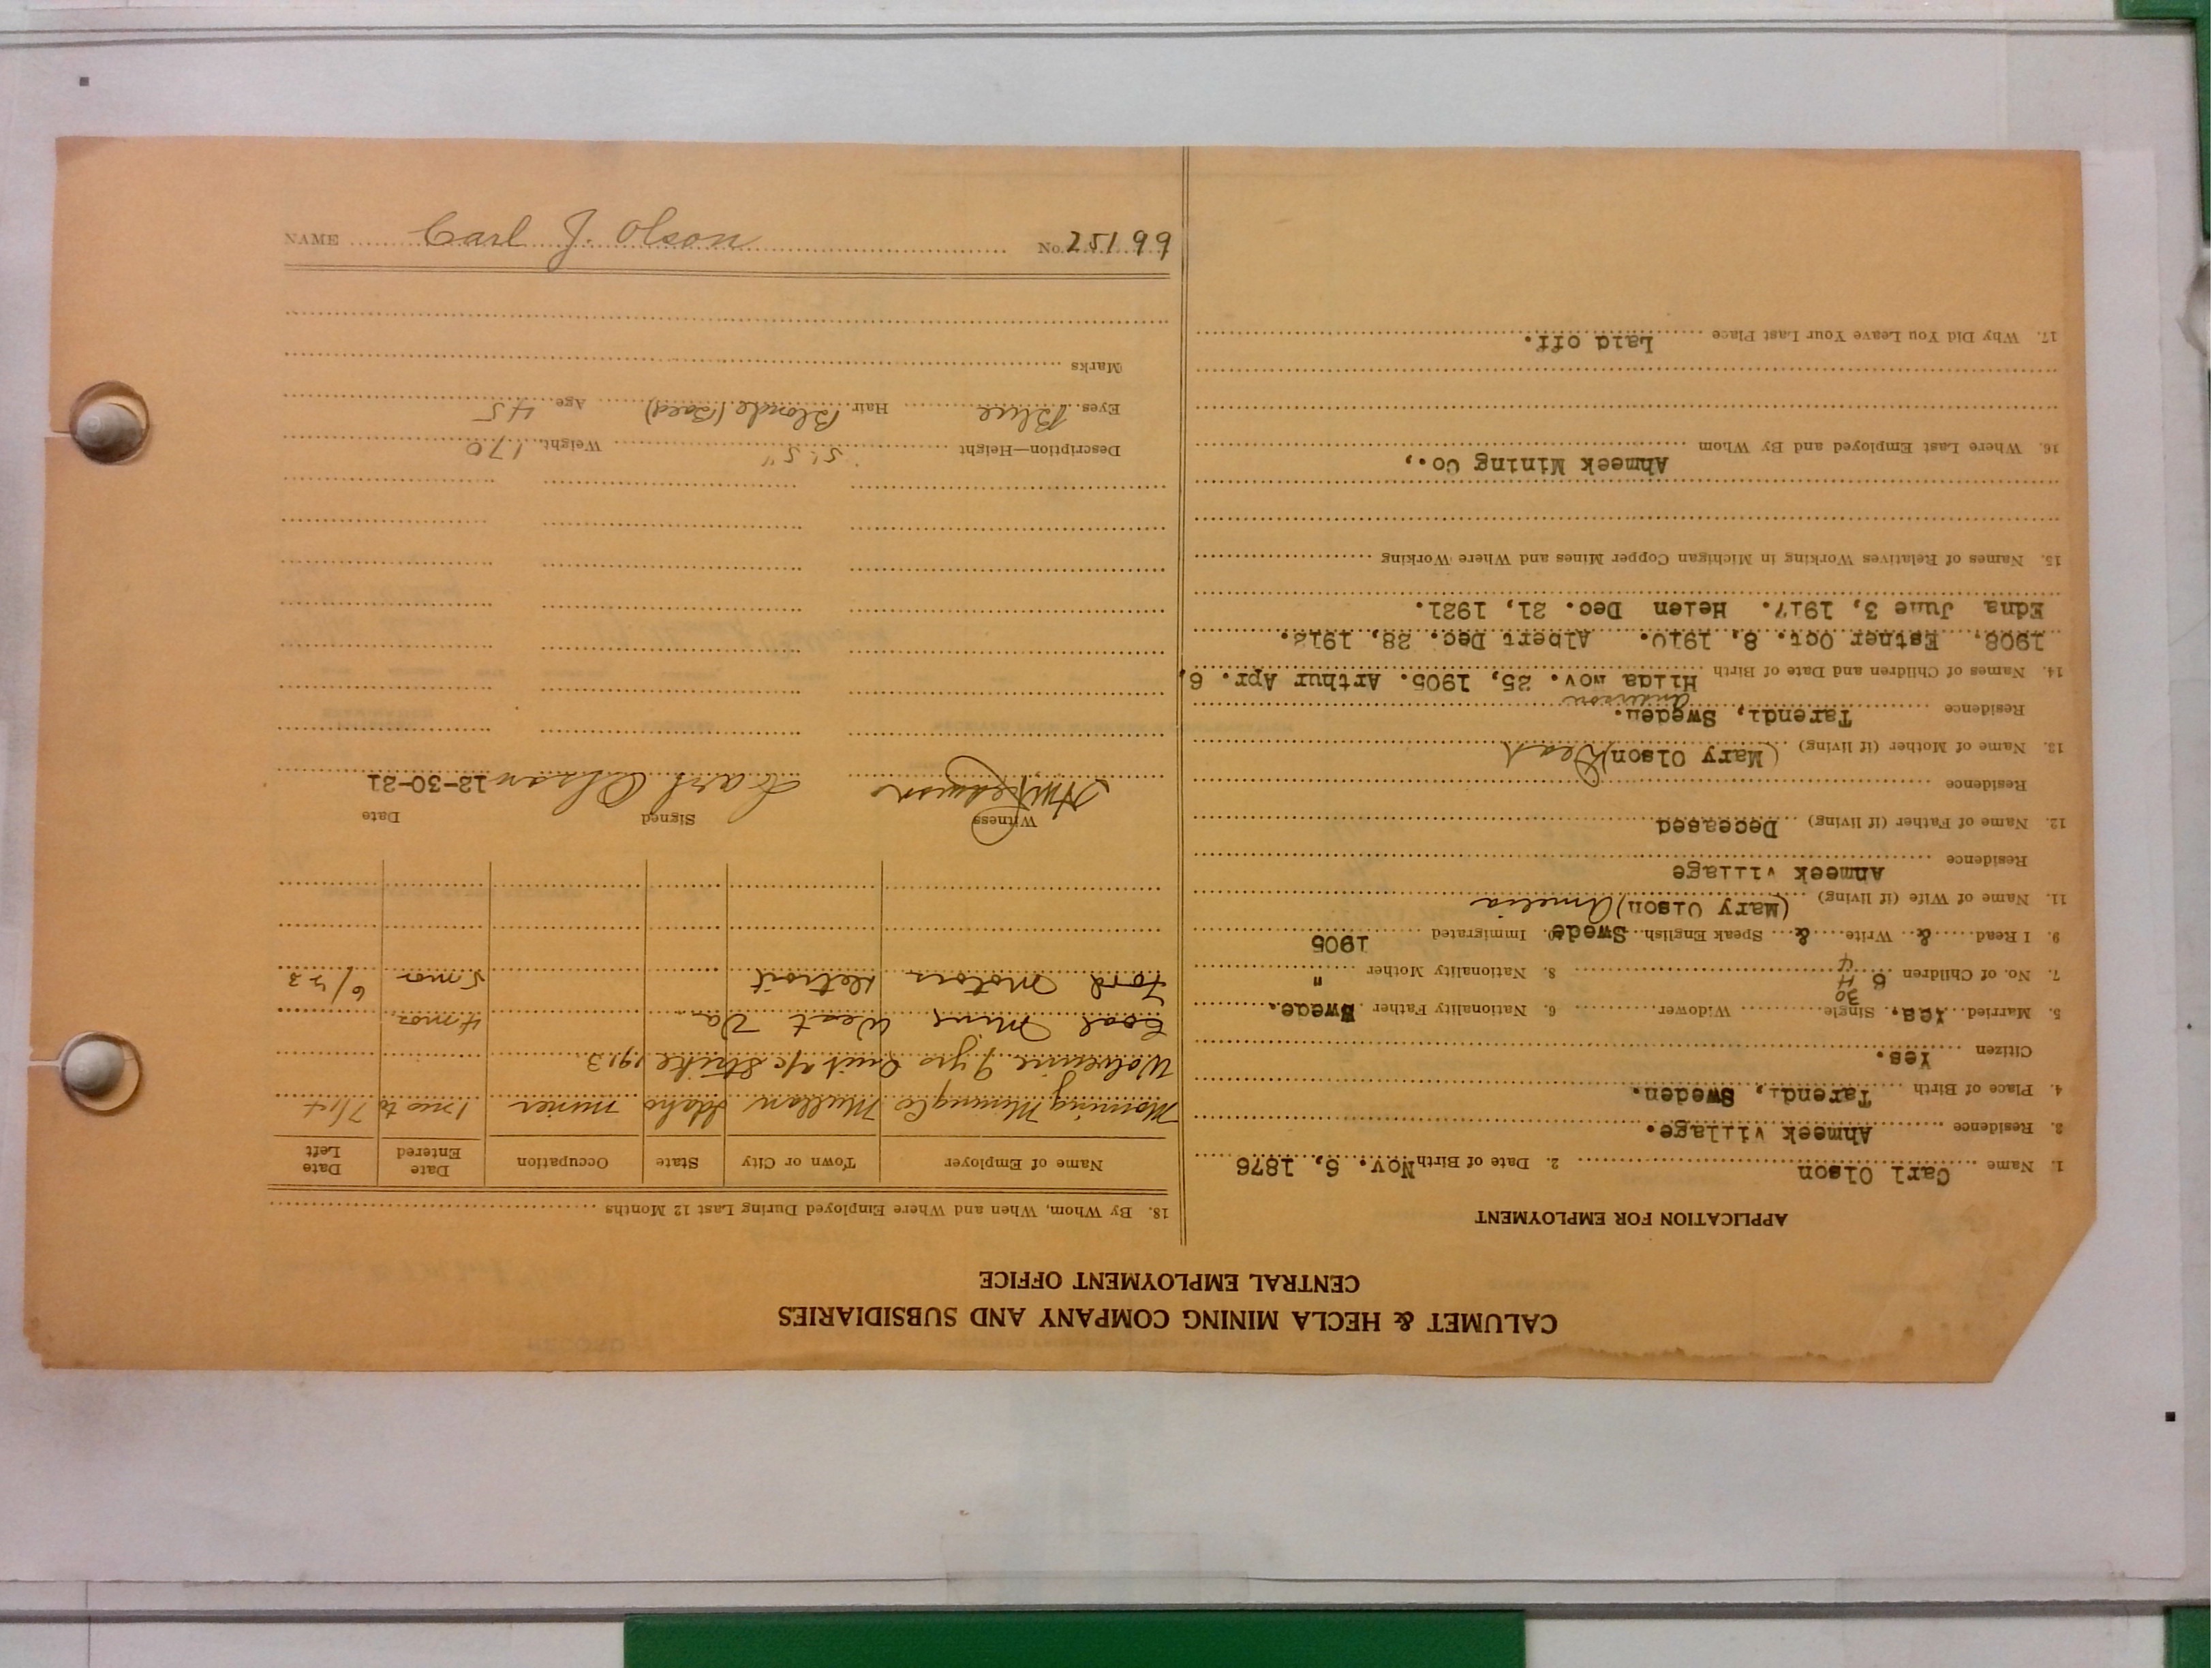 NAME Carl J. Olson No. 25199
CALUMET & HECLA MINING COMPANY AND SUBSIDIARIES
CENTRAL EMPLOYMENT OFFICE
APPLICATION FOR EMPLOYMENT
1. Name Carl Olson 2. Date of Birth Nov. 6, 1876
3. Residence Ahmeek Village.
4. Place of Birth Tarendi, Sweden.
Citizen Yes.
5. Married Yes. Single Widower 6. Nationality Father Swede.
30
7. No. of Children 5 4 8. Nationality Mother "
4
9. I Read & Write & Speak English Swede 10. Immigrated 1905
11. Name of Wife (if living) (Mary Olson) Amelia
Residence Ahmeek Village
12. Name of Father (if living) Deceased
Residence
13. Name of Mother (if living) (Mary Olson) Dead
Residence Tarendi, Sweden.
Anderson
14. Names of Children and Date of Birth Hilda Nov. 25, 1905. Arthur Apr. 6,
1908. Esther Oct. 8, 1910. Albert Dec. 28, 1912.
Edna June 3, 1917. Helen Dec. 21, 1921.
15. Names of Relatives Working in Michigan Copper Mines and Where Working
16. Where Last Employed and By Whom
Ahmeek Mining Co.,
17. Why Did You Leave Your Last Place Laid off.
18. By Whom, When and Where Employed During Last 12 Months
Name of Employer Town or City State Occupation Date Entered Date Left
Morning Mining Co Mullan Idaho miner 1 mo to 7/14
Wolverine 7 yrs Quit a/c Strike 1913
Coal Mine West Va. 4 mos
Ford Motors Detroit 5 mos 6/23
Witness Signed Date
Carl Olson 12-30-21
Description—Height 5' 5" Weight 170
Eyes Blue Hair Blonde (Bald) Age 45
Marks